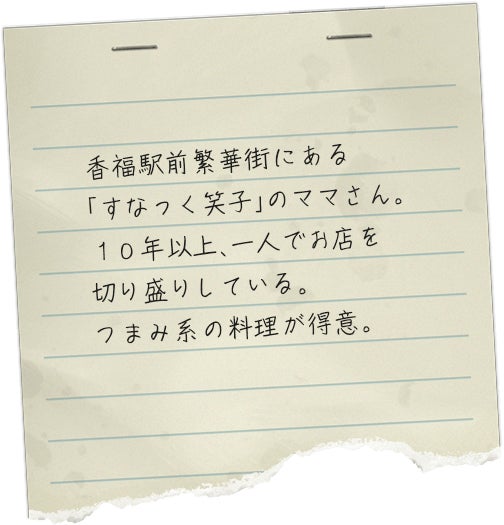 香福駅前繁華街にある
「すなっく笑子」のママさん。
１０年以上、一人でお店を
切り盛りしている。
つまみ系の料理が得意。